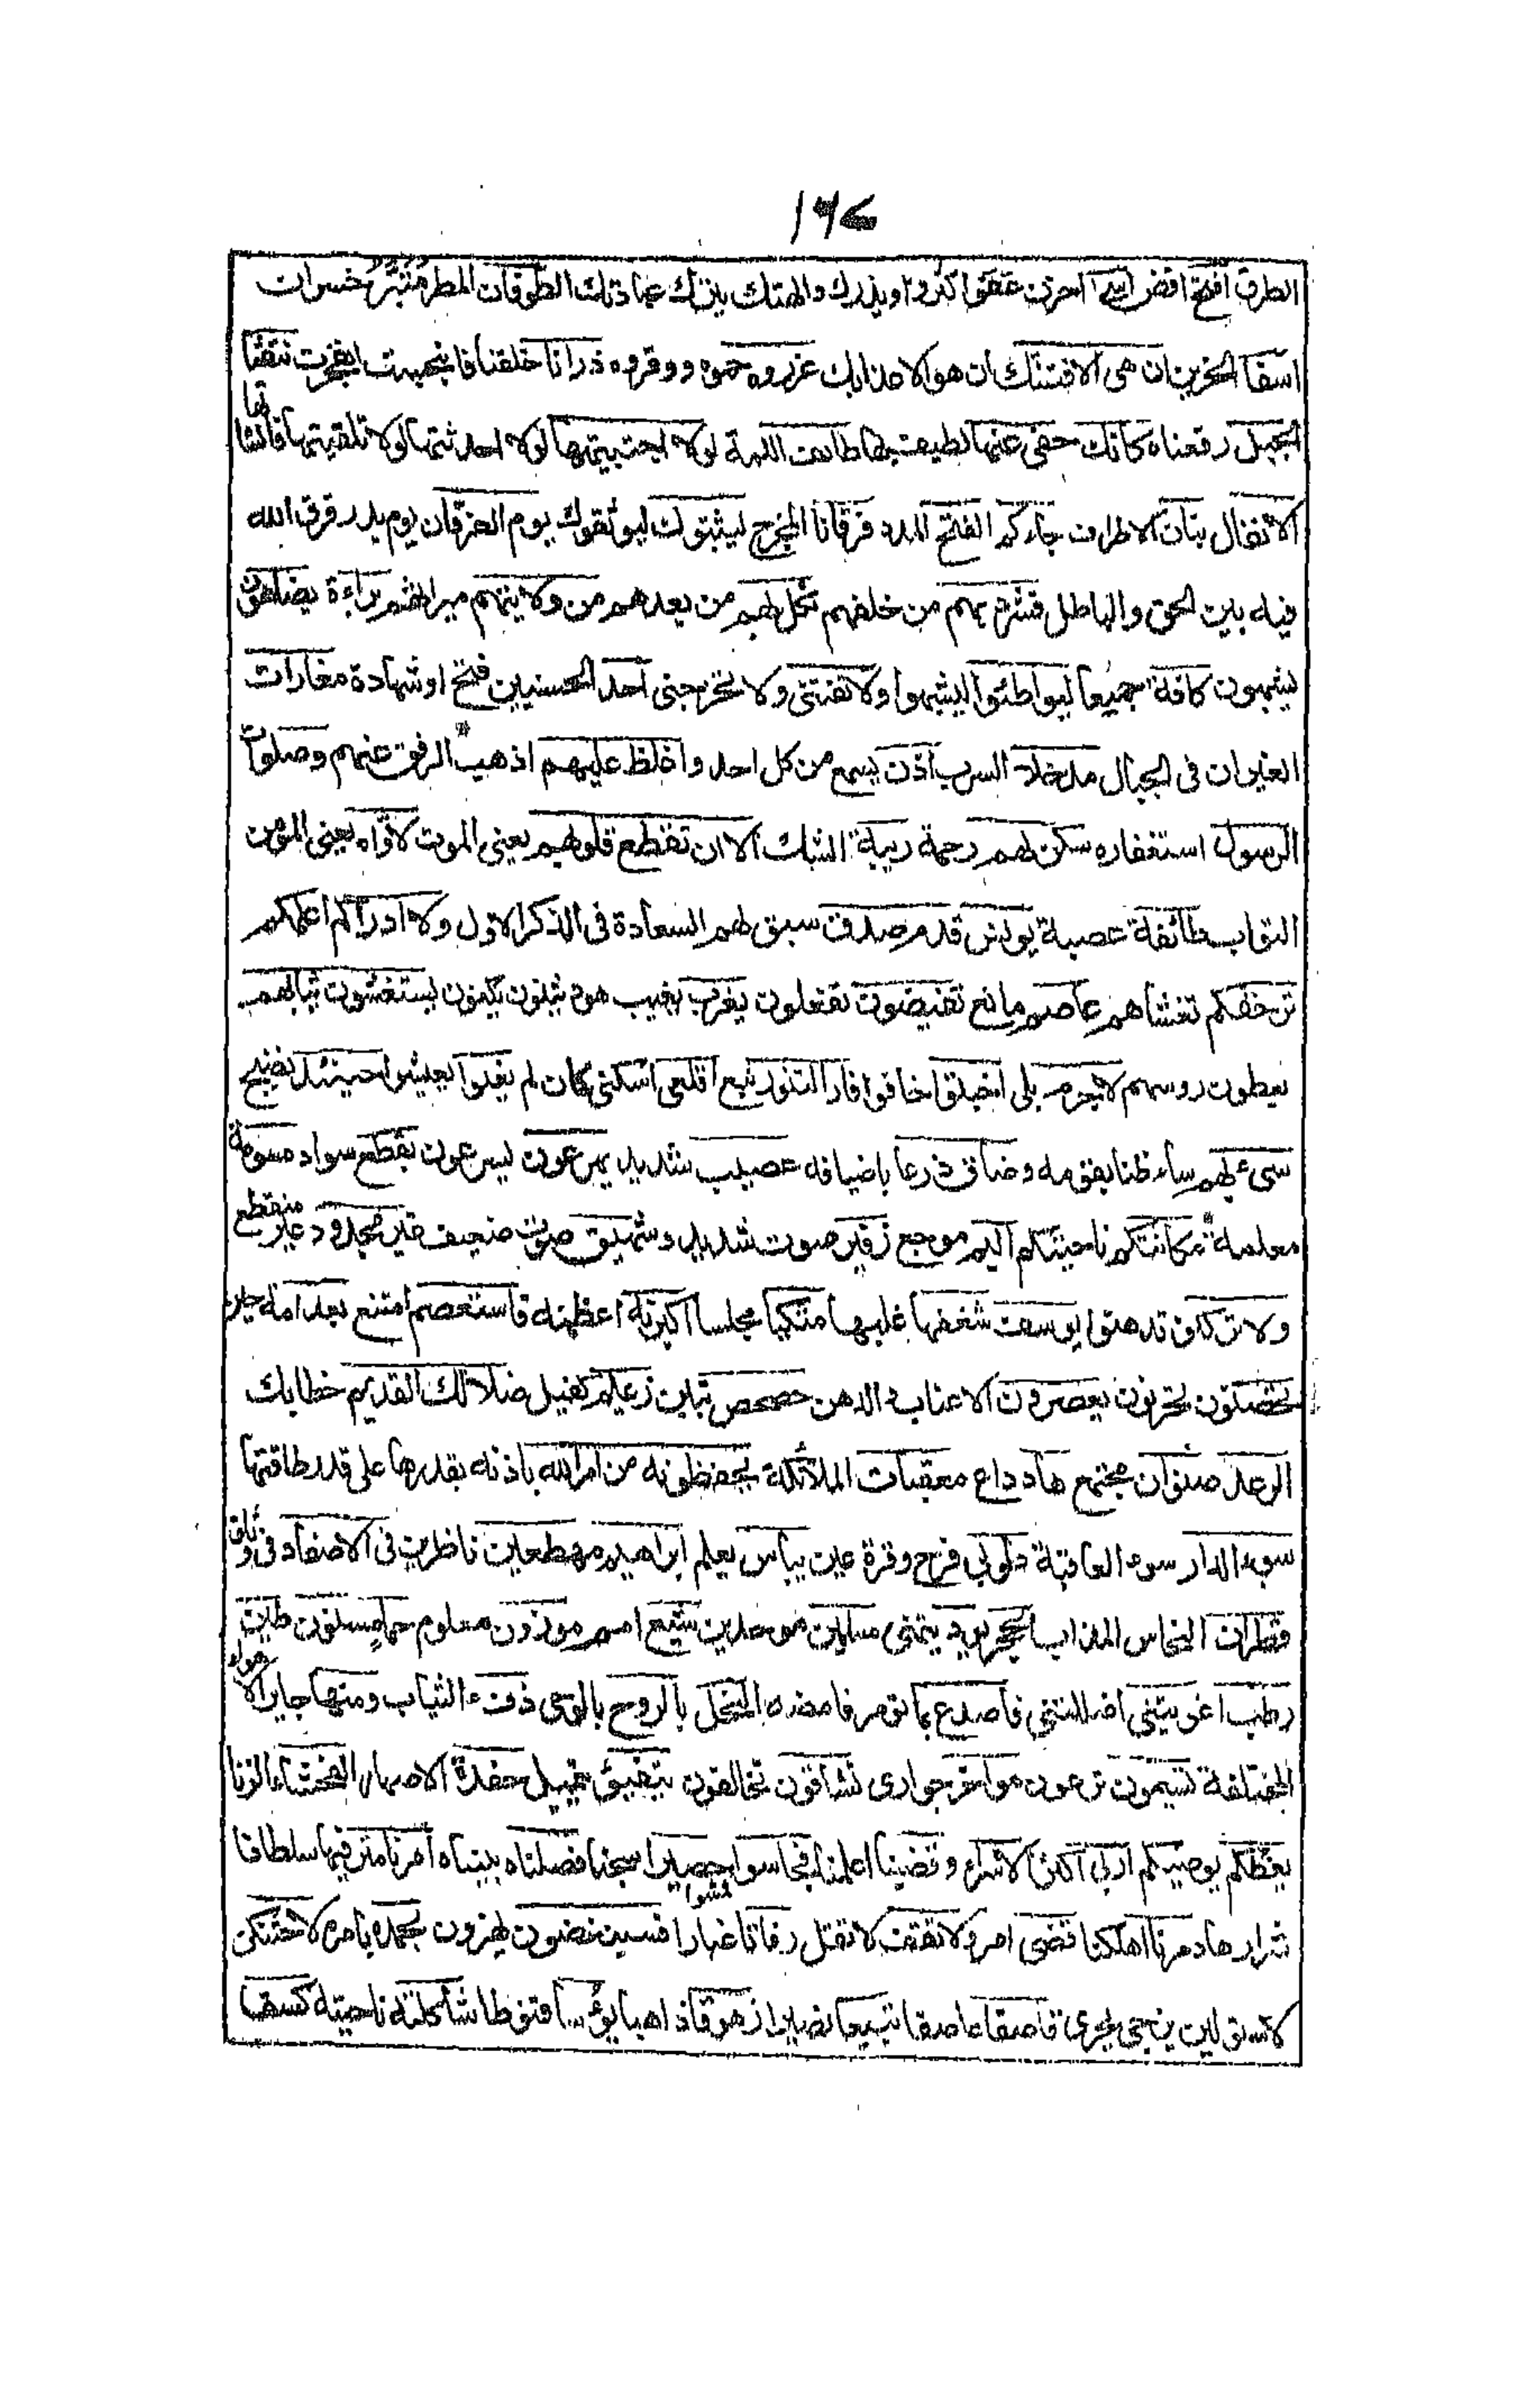 ١٦٧
الطرق افتح اقض اسى احزن عفوا كثروا ويذرك والهتك يترك عبادتك الطوفان المطر متبر خسران
اسفا الحزين ان هي الا فتنتك ان هو الا عذابك عزروه حموه ووقروه ذرانا خلقنا فانبجست انفجرت نتقنا
الجبل رفعناه كانك حفي عنها لطيف بها طائف اللمة لولا اجتبيتها لولا احدثتها لولا تلقيتها فانشاتها
الانفال بنان الاطراف جاءكم الفتح المدد فرقانا المخرج ليثبتوك ليوثقوك يوم الفرقان يوم بدر فرق الله
فيه بين الحق والباطل فشرد بهم من خلفهم نكل بهم من بعدهم من ولايتهم ميراثهم براءة يضاهون
يشبهون كافة جميعا ليواطئوا ليشبهوا ولا تفتني ولا تخرجني احد الحسنيين فتح او شهادة مغارات
الغيران في الجبال مدخلا السرب اذن يسمع من كل احد واغلظ عليهم اذهب الرفق عنهم وصلوات
الرسول استغفاره سكن لهم رحمة ريبة الشك الا ان تقطع قلوبهم يعني الموت لاواه يعني المؤمن
التواب طائفة عصبة يونس قدم صدق سبق لهم السعادة في الذكر الاول ولا ادراكم اعلمكم
ترهقهم تغشاهم عاصم مانع تفيضون تفعلون يعزب يغيب هود يثنون يكنون يستغشون ثيابهم
يغطون روسهم لا جرم بلى اخبتوا خافوا فار التنور نبع اقلعي اسكني كان لم يغنوا يعيشوا حنيذ نضيج
سيء بهم ساء ظنا بقومه وضاق ذرعا باضيافه عصيب شديد يهرعون يسرعون بقطع سواد مسومة
معلمة مكانتكم ناحيتكم اليم موجع زفير صوت شديد وشهيق صوت ضعيف غير مجذوذ غير منقطع
ولا تركنوا تدهنوا يوسف شغفها غلبها متكئا مجلسا اكبرنه اعظمنه فاستعصم امتنع بعد امة حين
تحصنون تخزنون يعصرون الاعناب والدهن حصحص تبين زعيم كفيل ضلالك القديم خطايك
الرعد صنوان مجتمع هاد داع معقبات الملائكة يحفظونه من امر الله باذنه بقدرها على قدر طاقتها
سوء الدار سوء العاقبة طوبى فرح وقرة عين ييأس يعلم ابراهيم مهطعين ناظرين في الاصفاد في وثاق
قطران النحاس المذاب الحجر يود يتمنى مسلمين موحدين شيع امم موزون معلوم حما مسنون طين
رطب اغويتني اضللتني فاصدع بما تؤمر فامضه النحل بالروح بالوحي دفء الثياب ومنها جائر الاهواء
المختلفة تسيمون ترعون مواخر جواري تشاقون تخالفون يتفيؤ يميل حفدة الاصهار الفحشاء الزنا
يعظكم يوصيكم اربى اكثر الاسراء وقضينا اعلمنا فجاسوا فمشوا حصيرا سجنا فصلناه بيناه امرنا مترفيها سلطنا
شرارها دمرنا اهلكنا قضى امر ولا تقف لا تقل رفاتا غبارا فسينغضون يهزون بحمده بامره لاحتنكن
لاستولين يزجي يجري قاصفا عاصفا تبيعا نصيرا زهوقا ذاهبا يؤسا قنوطا شاكلته ناحيته كسفا